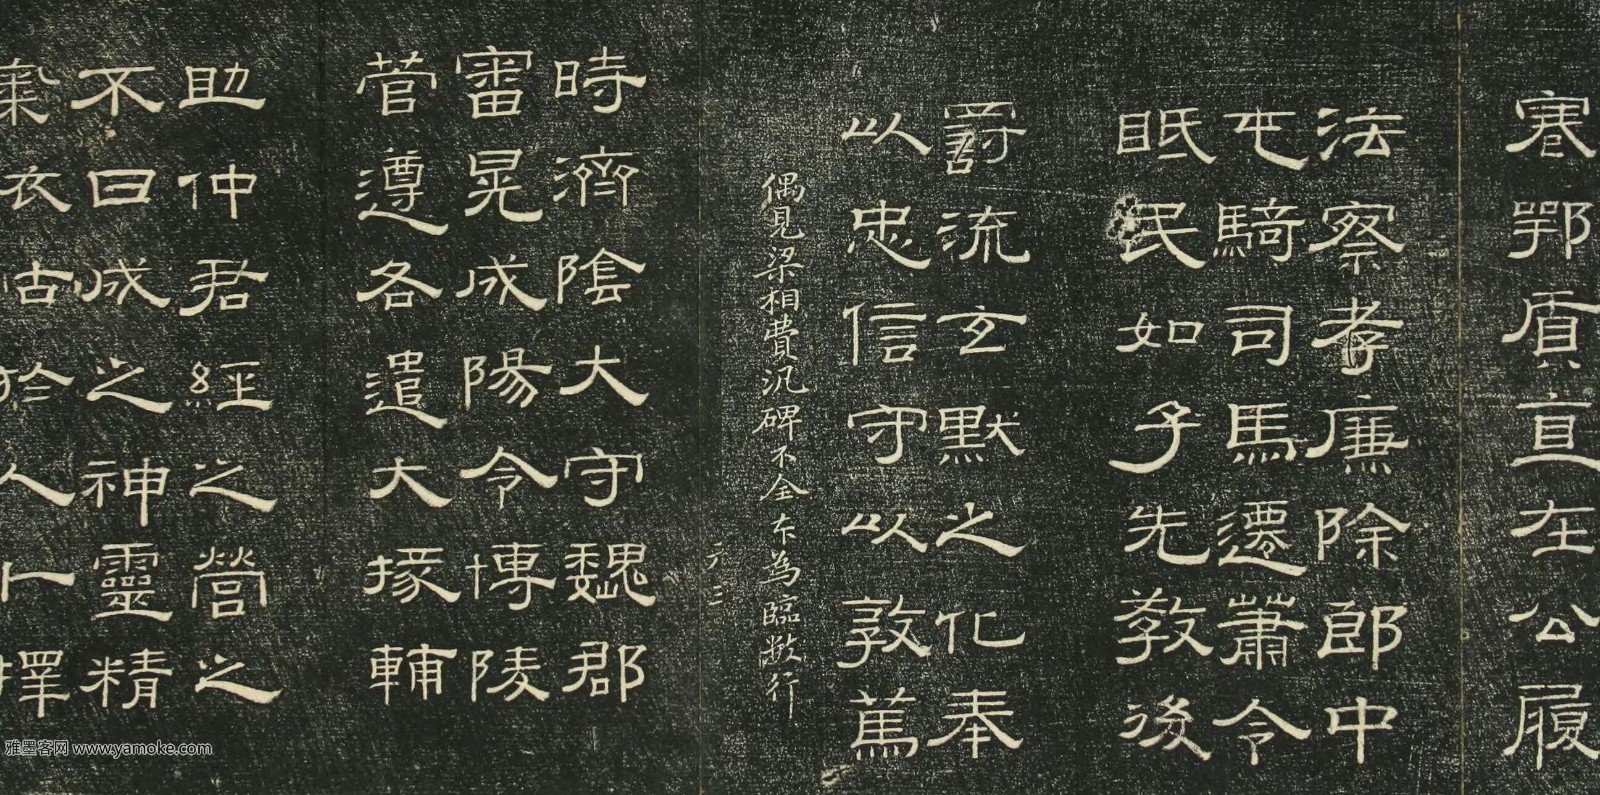 謇鄂盾直在公履
法察孝廉除郎中
屯騎司馬遷蕭令
眂民如子先教後
爵流玄默之化奉
以忠信守以敦篤
偶見梁相費汎碑不全本為臨數行
元三
時濟陰大守魏郡
審晃成陽令博陵
菅遵各遣大掾輔
助仲君經之營之
不日成之神靈精
氣衣古於人卜擇
雅墨客网 www.yamoke.com